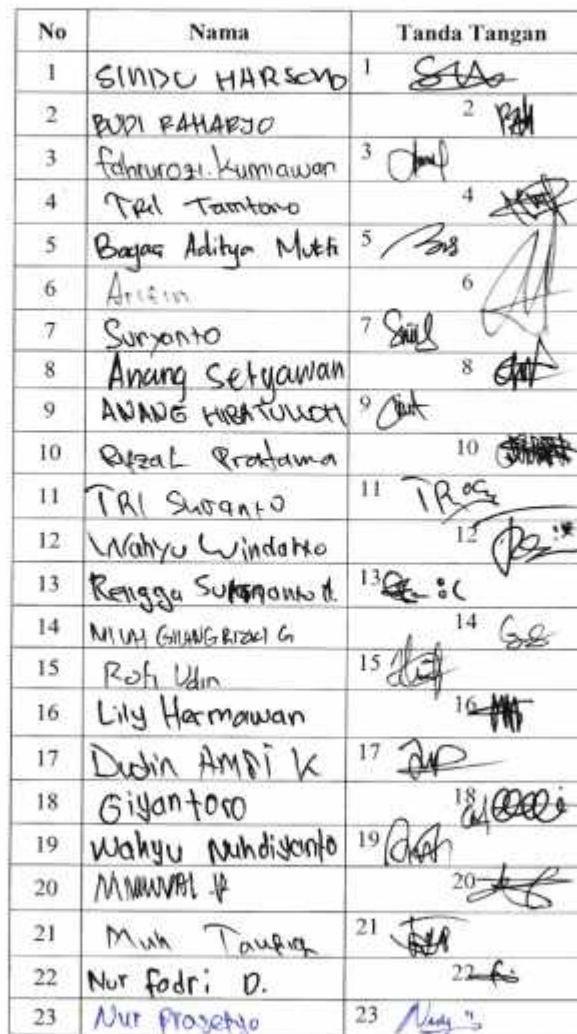 No Nama Tanda Tangan
1 SINDU HARSONO 1
2 BUDI RAHARJO 2
3 fahrurozi.kurniawan 3
4 TRI Tamtomo 4
5 Bagas Aditya Mukti 5
6 Arifin 6
7 Suryanto 7
8 Anang Setyawan 8
9 ANANG HIBATULLOH 9
10 Rifzal Pratama 10
11 TRI Suranto 11
12 Wahyu Windarto 12
13 Rengga 13
14 GILANG RIZKI G 14
15 Rofi Udin 15
16 Lily Hermawan 16
17 Dudin K 17
18 Giyantoro 18
19 Wahyu Nuhdiyanto 19
20 20
21 Muh Taufiq 21
22 Nur fadri D. 22
23 Nur Prasetyo 23